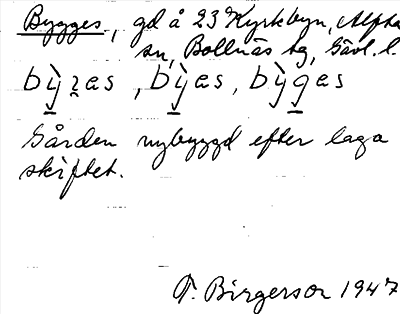 Bygges, gd å 23 Kyrkbyn, Alfta
sn, Bollnäs tg, Gävl. l.
bỳʒes, bỳes, bỳges
Gården nybyggd efter laga
skiftet.
T. Birgersor 1947